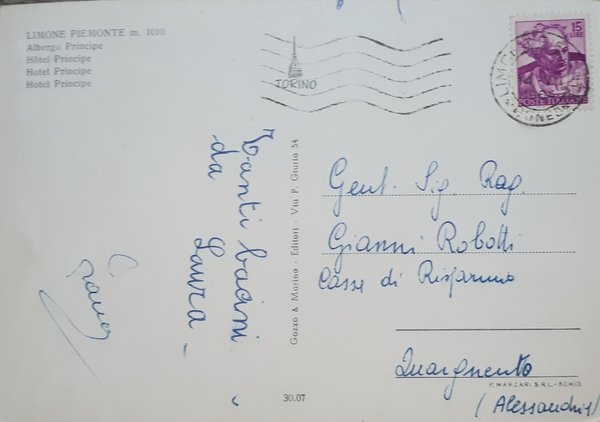 LIMONE PIEMONTE m. 1010
Albergo Principe
Hôtel Principe
Hotel Principe
Hotel Principe
TORINO
15
LIRE
POSTE ITALIANE
Tanti bacini
da Laura -
Gozzo & Marino - Editori - Via P. Giuria 54
Gent. Sig. Rag.
Gianni Robotti
Casse di Risparmio
Quargnento
(Alessandria)
P. MARZARI S.R.L. - SCHIO
30.07